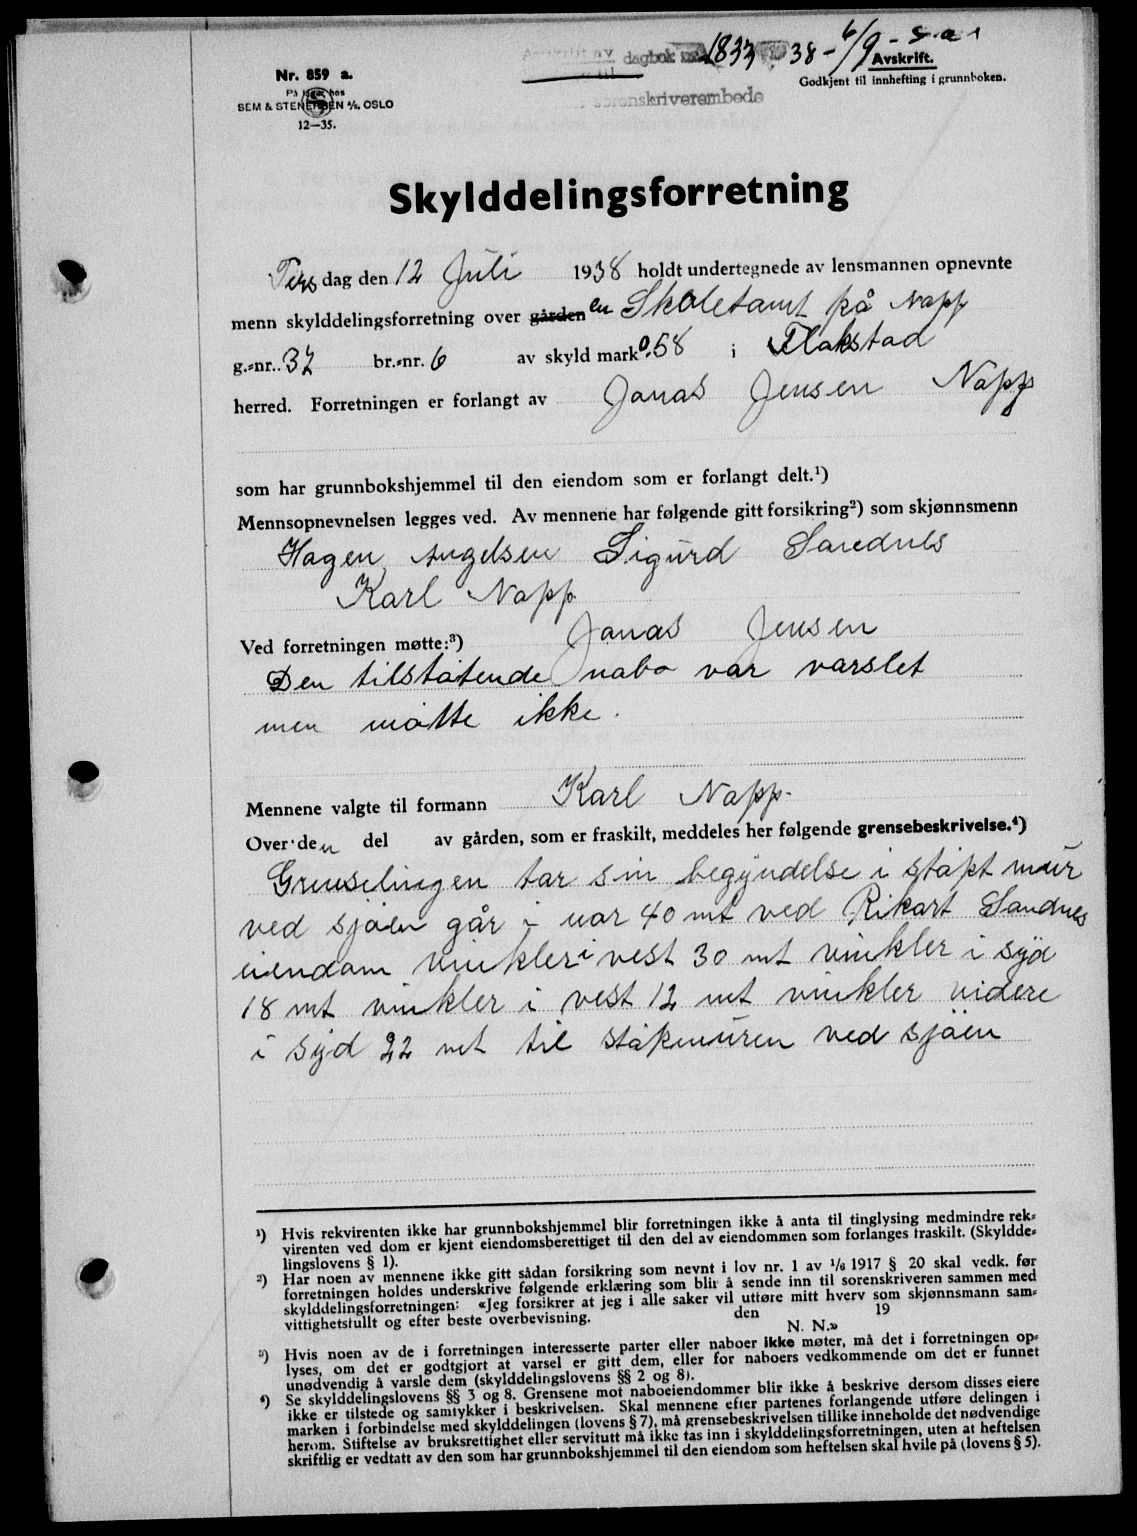 dagbok nr. 1833 1938 - 6/9 -
Nr. 859 a.
På lager hos
SEM & STENERSEN A/S, OSLO
12—35.
Avskrift.
Godkjent til innhefting i grunnboken.
sorenskriverembede
Skylddelingsforretning
Tirsdag den 12 Juli 1938 holdt undertegnede av lensmannen opnevnte
menn skylddelingsforretning over gården en Skoletomt på Napp
g.-nr. 37 br.-nr. 6 av skyld mark 0.58 i Flakstad
herred. Forretningen er forlangt av Jonas Jensen Napp
som har grunnbokshjemmel til den eiendom som er forlangt delt.¹)
Mennsopnevnelsen legges ved. Av mennene har følgende gitt forsikring²) som skjønnsmenn
Hagen Angelsen Sigurd Sandnes
Karl Napp
Ved forretningen møtte:³) Jonas Jensen
Den tilstøtende nabo var varslet
men møtte ikke.
Mennene valgte til formann Karl Napp.
Over den del av gården, som er fraskilt, meddeles her følgende grensebeskrivelse.⁴)
Grenselingen tar sin begyndelse i støpt mur
ved sjøen går i nor 40 mt ved Rikart Sandnes
eiendom vinkler i vest 30 mt vinkler i syd
18 mt vinkler i vest 12 mt vinkler videre
i syd 22 mt til støpmuren ved sjøen
¹) Hvis rekvirenten ikke har grunnbokshjemmel blir forretningen ikke å anta til tinglysing medmindre rek-
virenten ved dom er kjent eiendomsberettiget til den del av eiendommen som forlanges fraskilt. (Skyldde-
lingslovens § 1).
²) Har noen av mennene ikke gitt sådan forsikring som nevnt i lov nr. 1 av 1/6 1917 § 20 skal vedk. før
forretningen holdes underskrive følgende erklæring som blir å sende inn til sorenskriveren sammen med
skylddelingsforretningen: «Jeg forsikrer at jeg i alle saker vil utføre mitt hverv som skjønnsmann sam-
vittighetsfullt og efter beste overbevisning. den 19
N. N.»
³) Hvis noen av de i forretningen interesserte parter eller naboer ikke møter, må det i forretningen op-
lyses, om det er godtgjort at varsel er gitt dem, eller for naboers vedkommende om det er funnet
unødvendig å varsle dem (skylddelingslovens §§ 2 og 8).
⁴) Se skylddelingslovens §§ 3 og 8. Grensene mot naboeiendommer blir ikke å beskrive dersom disses eiere
ikke er tilstede og samtykker i beskrivelsen. Skal mennene efter partenes forlangende utføre delingen i
marken i forbindelse med skylddelingen (lovens § 7), må grensebeskrivelsen tillike inneholde det nødvendige
herom. Stiftelse av bruksrettighet eller servitutt må ikke tas inn i skylddelingsforretningen, uten at heftelsen
skriftlig er vedtatt av den som har grunnbokshjemmel til den eiendom som heftelsen skal hvile på (lovens § 5).